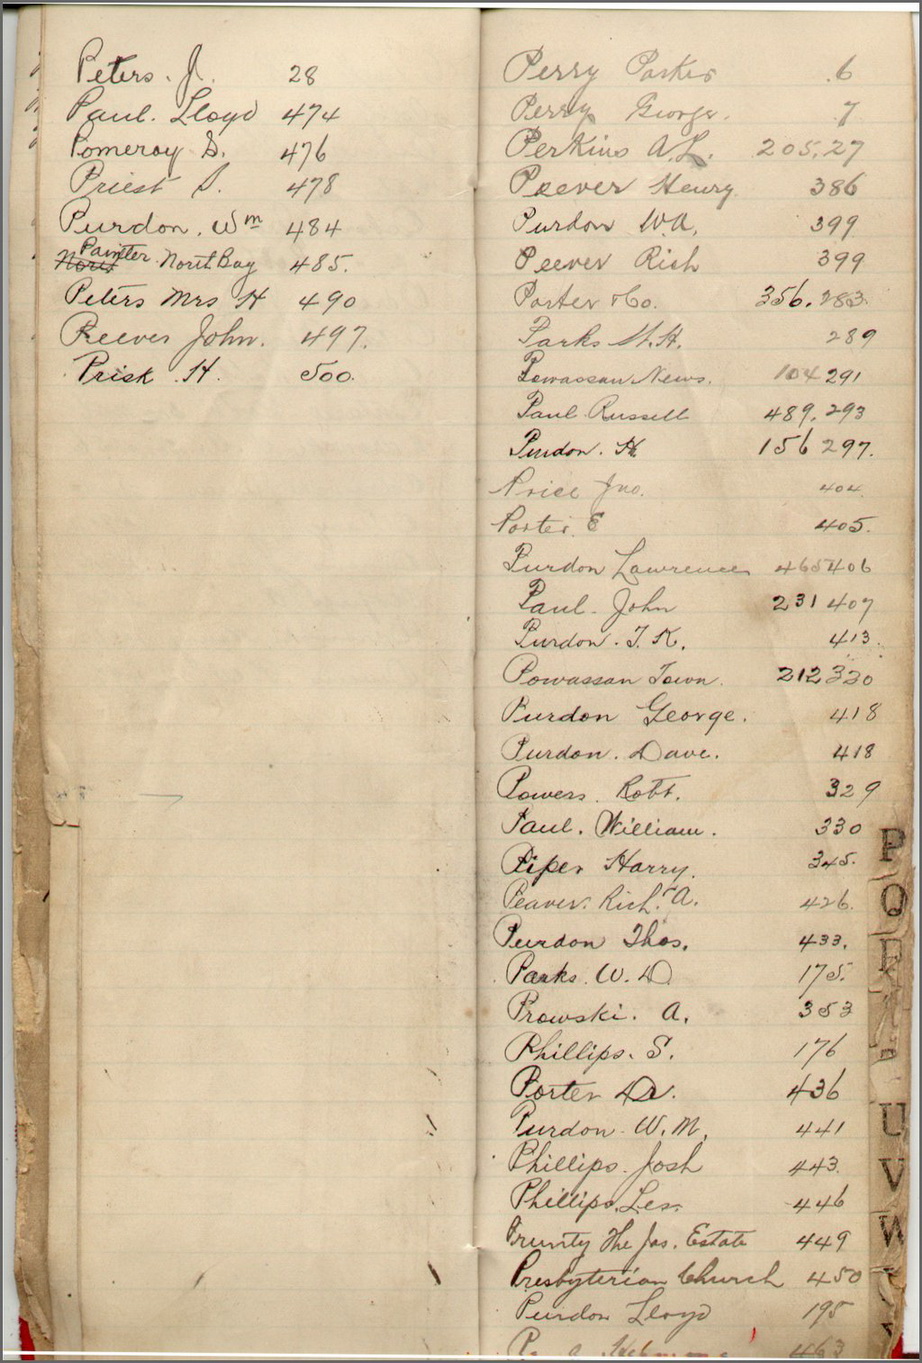 Peters. J. 28
Paul. Lloyd 474
Pomeroy S. 476
Priest S. 478
Purdon. Wm 484
Painter
North Bay 485.
Peters Mrs H 490
Reever John. 497.
Prisk H. 500.
Perry Parker 6
Perry George. 7
Perkins A.L. 205,27
Peever Henry 386
Purdon W.A. 399
Peever Rich 399
Porter & Co. 356.283.
Parks W.H. 289
Powassan News. 104 291
Paul Russell 489.293
Purdon. H 156 297.
Price Jno. 404
Porter. E 405.
Purdon Lawrence 465406
Paul. John 231 407
Purdon. T.K. 413.
Powassan Town. 212330
Purdon George. 418
Purdon. Dave. 418
Powers. Robt. 329
Paul. William. 330
Piper Harry. 345.
Peaver. Rich. A. 426.
Purdon Thos. 433.
Parks. W.D 175.
Prowski. A. 353
Phillips. S. 176
Porter Dr. 436
Purdon. W.M. 441
Phillips. Josh 443.
Phillips. Les. 446
Prunty The Jas. Estate 449
Presbyterian Church 450
Purdon Lloyd 195
463
P
Q
R
U
V
W